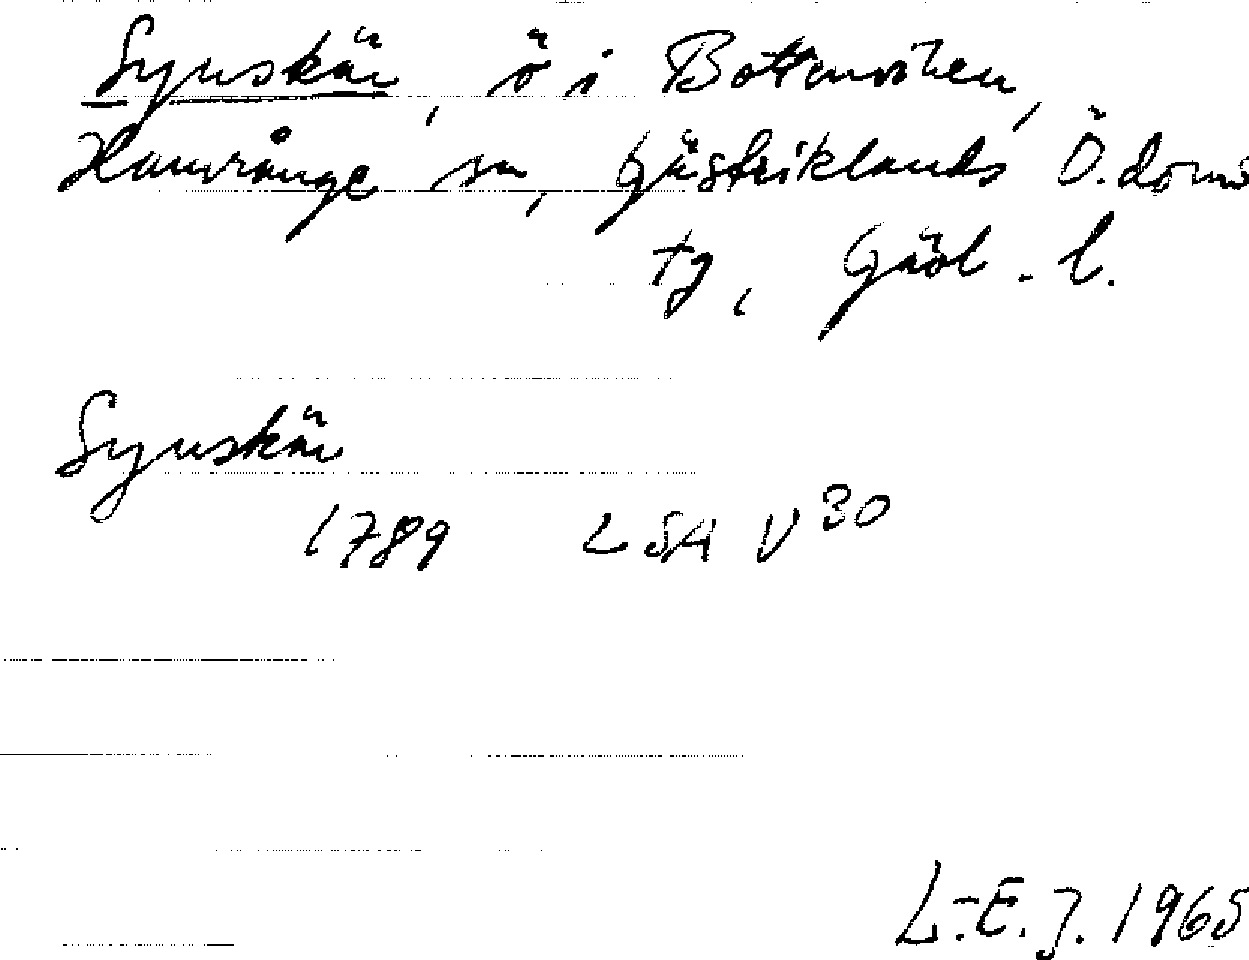 Synskär, ö i Bottenviken,
Hamrånge sn, Gästriklands Ö. doms
tg, Gävl. l.
Synskär
1789 LSA V 30
L-E. J. 1965